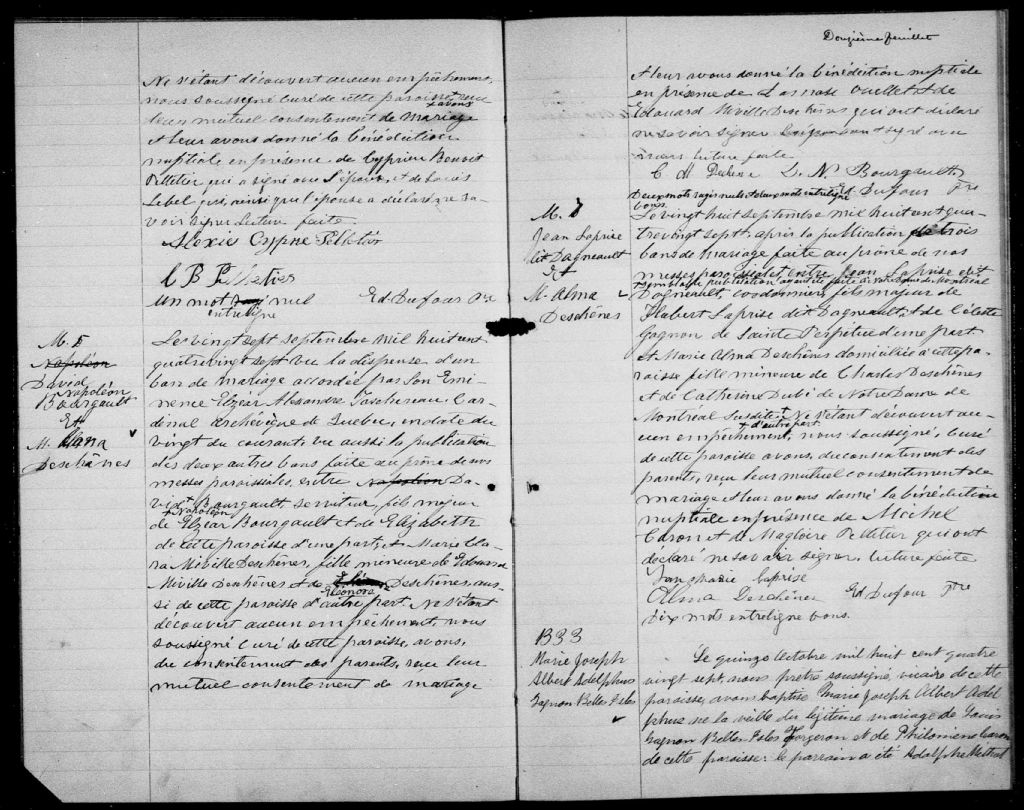 Ne s'étant découvert aucun empêchement,
nous soussigné curé de cette paroisse, reçu
+ avons
leur mutuel consentement de mariage
et leur avons donné la bénédiction
nuptiale en présence de Cyprien Benoit
Pelletier qui a signé avec l'époux, et de Louis
Lebel qui, ainsi que l'épouse a déclaré ne sa-
voir signer Lecture faite
Alexis Cypre Pelletier
C B Pelletier
Un mot nul Ed Dufour Ptre
entreligne
M. 5
Napoléon
David
Napoléon
Bourgault
Et
M. Clara
Deschênes
Le vingt sept septembre mil huit cent
quatrevingt sept vu la dispense d'un
ban de mariage accordée par Son Emi-
nence Elzéar Alexandre Taschereau Car-
dinal Archévêque de Quebec, en date du
vingt du courant, vu aussi la publication
des deux autres bans faite au prône de nos
messes paroissiales, entre Napoléon Da-
vid + Bourgault serviteur, fils majeur
+ Napoléon
de Elzéar Bourgault et de Elizabeth
de cette paroisse d'une part; et Marie Cla-
ra Miville Deschênes, fille mineure de Edouard
Miville Deschênes et de Deschênes, aus-
Eleonore
si de cette paroisse d'autre part. Ne s'étant
découvert aucun empêchement, nous
soussigné curé de cette paroisse, avons,
du consentement des parents, reçu leur
mutuel consentement de mariage
Douzième feuillet
et leur avons donné la bénédiction nuptiale
en présence de Ouellet et de
Edouard Miville Deschênes qui ont déclaré
ne savoir signer
lecture faite
C. M Deschene D. N Bourgault
Deux mots rayés nuls et deux mots entreligne Ed Dufour Ptre
bons.
M. 6
Jean Laprise
dit Dagneault
Et
M. Alma
Deschênes
Le vingt huit septembre mil huit cent qua-
trevingt sept, après la publication de trois
bans de mariage faite au prône de nos
messes paroissiales entre Jean Laprise dit
semblable publication ayant été faite à Notre Dame de Montréal
Dagneault, cordonnier, fils majeur de
Hubert Laprise dit Dagneault, et de Céleste
Gagnon de Sainte Perpétue d'une part
et Marie Alma Deschênes domiciliée à cette pa-
roisse fille mineure de Charles Deschênes
et de Catherine Dubé de Notre Dame de
Montréal susdite + Ne s'étant découvert au-
+ d'autre part
cun empêchement, nous soussigné, curé
de cette paroisse avons, du consentement des
parents, reçu leur mutuel consentement de
mariage et leur avons donné la bénédiction
nuptiale en présence de Michel
Caron et de Magloire Pelletier qui ont
déclaré ne savoir signer, lecture faite
Jean Laprise
Alma Deschênes Ed Dufour Ptre
Dix mots entreligne bons.
B 33
Marie Joseph
Albert Adelphus
Gagnon Belles Isles
Le quinze Octobre mil huit cent quatre
vingt sept, nous prêtre soussigné, vicaire de cette
paroisse, avons baptisé Marie Joseph Albert Adel
phus né la veille du légitime mariage de Louis
Gagnon Belles Isles forgeron et de Philomène Caron
de cette paroisse: le parrain a été Adolphe